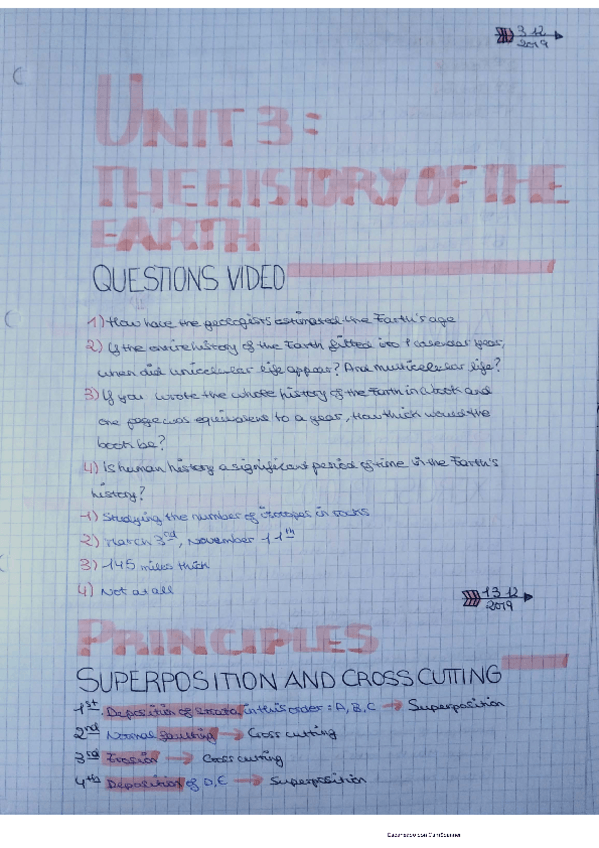 3 12
2019
UNIT 3:
THE HISTORY OF THE
EARTH
QUESTIONS VIDEO
1) How have the geologists estimated the Earth's age
2) If the entire history of the Earth fitted into 1 calendar year,
when did unicelular life appear? And multicelular life?
3) If you wrote the whole history of the Earth in a book and
one page was equivalent to a year, How thick would the
book be?
4) Is human history a significant period of time in the Earth's
history?
1) Studying the number of isotopes in rocks
2) March 3rd, November 11th
3) 145 miles thick
4) Not at all
13 12
2019
PRINCIPLES
SUPERPOSITION AND CROSS CUTTING
1st Deposition of strata in this order: A, B, C → Superposition
2nd Normal faulting → Cross cutting
3rd Erosion → Cross cutting
4th Deposition of D, E → Superposition
Escaneado con CamScanner